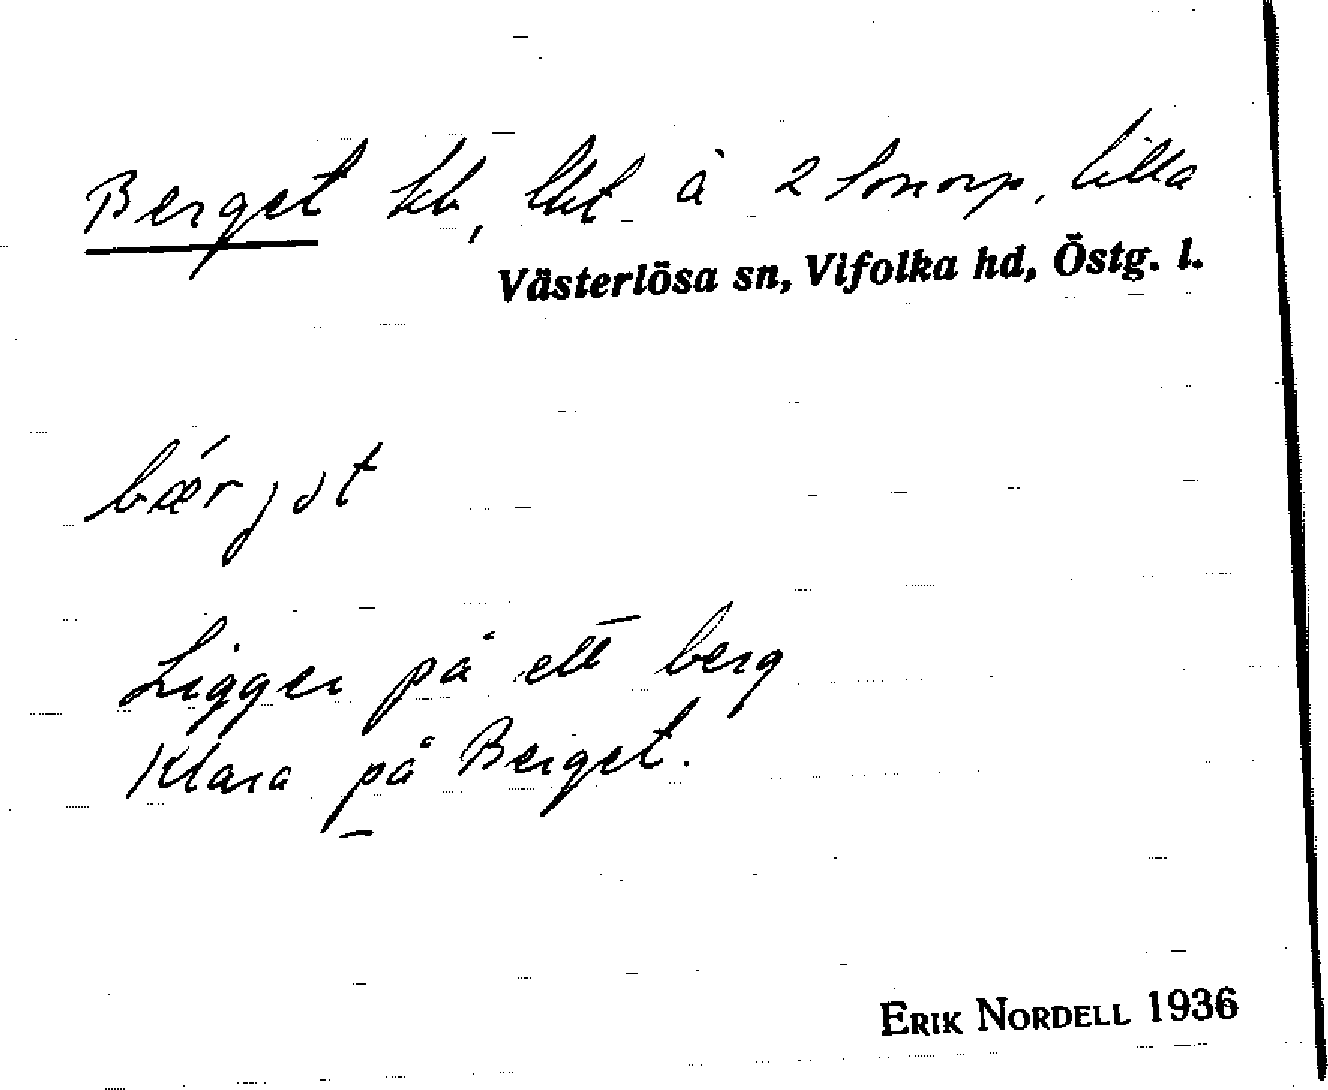 Berget lht, lht å 2 Tomorp, Lilla
Västerlösa sn, Vifolka hd, Östg. l.
bǽrjət
Ligger på ett berg
Klara på Berget.
ERIK NORDELL 1936